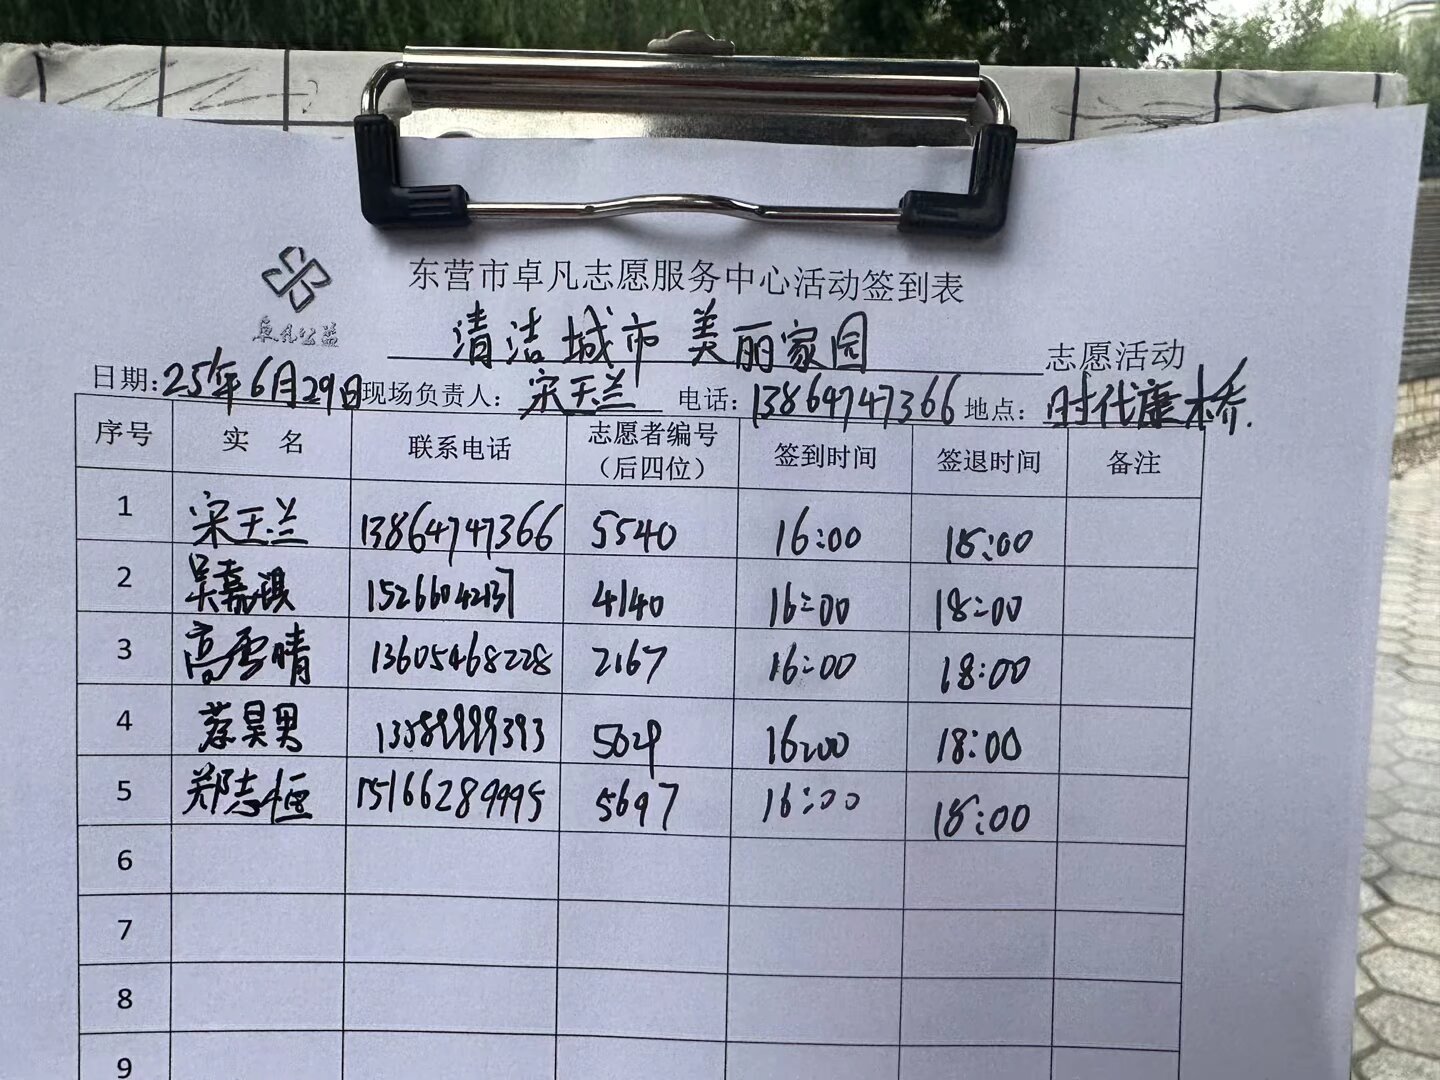 东营市卓凡志愿服务中心活动签到表
卓凡公益
清洁城市 美丽家园 志愿活动
日期:25年6月29日 现场负责人: 宋玉兰 电话: 13864747366 地点: 时代康桥.
序号 实 名 联系电话 志愿者编号（后四位） 签到时间 签退时间 备注
1 宋玉兰 13864747366 5540 16:00 18:00
2 吴嘉琪 15266042137 4140 16:00 18:00
3 高雪晴 13605468228 2167 16:00 18:00
4 蔡昊男 13589999393 5629 16:00 18:00
5 郑志恒 15166289995 5697 16:00 18:00
6
7
8
9